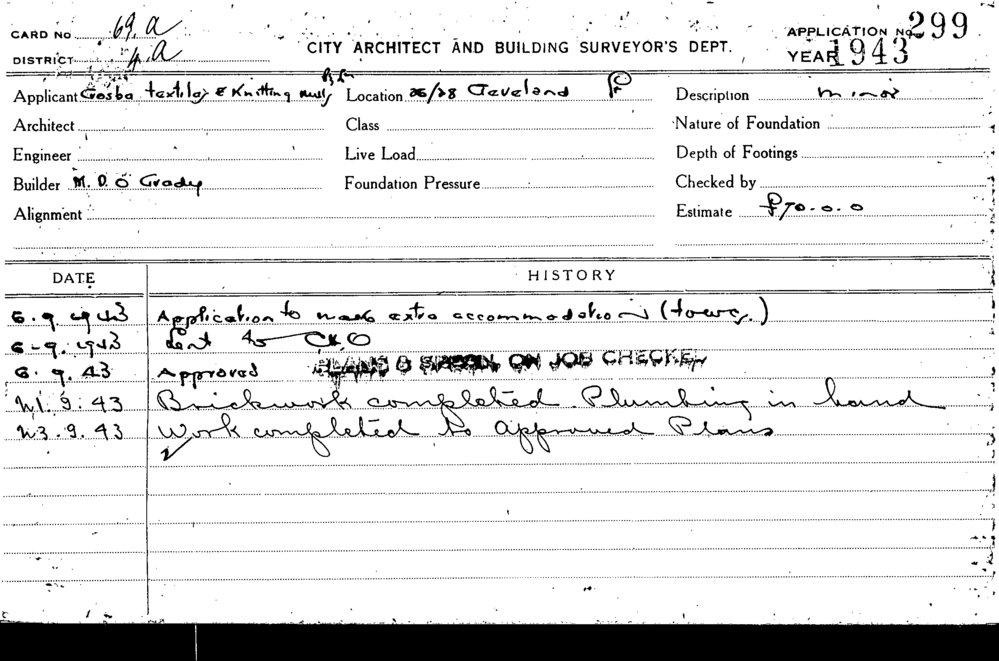 CARD No 69.a
CITY ARCHITECT AND BUILDING SURVEYOR'S DEPT.
APPLICATION No 299
DISTRICT 4.a
YEAR 1943
Applicant Gosba textiles & Knitting Location 26/28 Cleveland Description minor
Architect Class Nature of Foundation
Engineer Live Load Depth of Footings
Builder M. D. O Grady Foundation Pressure Checked by
Alignment Estimate £70.0.0
DATE HISTORY
6.9.1943 Application to make extra accommodation
6-9.1943 Sent to
6.9.43 Approved PLANS & ON JOB CHECKED
21.9.43 Brickwork completed. Plumbing in hand
23.9.43 Work completed to approved Plans